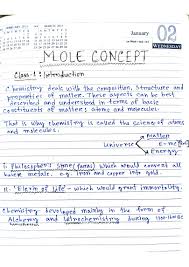 January
02
WEDNESDAY
MOLE CONCEPT
Class-1: Introduction
Chemistry deals with the composition, structure and
properties of matter. These aspects can be best
described and understood in terms of basic
constituents of matter: atoms and molecules.
That is why chemistry is called the science of atoms
and molecules.
Universe Matter
Energy
I. Philosopher's stone (Paras) which would convert all
baser metals. e.g. iron and copper into gold.
II. 'Elixir of Life' - which would grant immortality.
Chemistry developed mainly in the form of
Alchemy and Iatrochemistry during 1300-1600